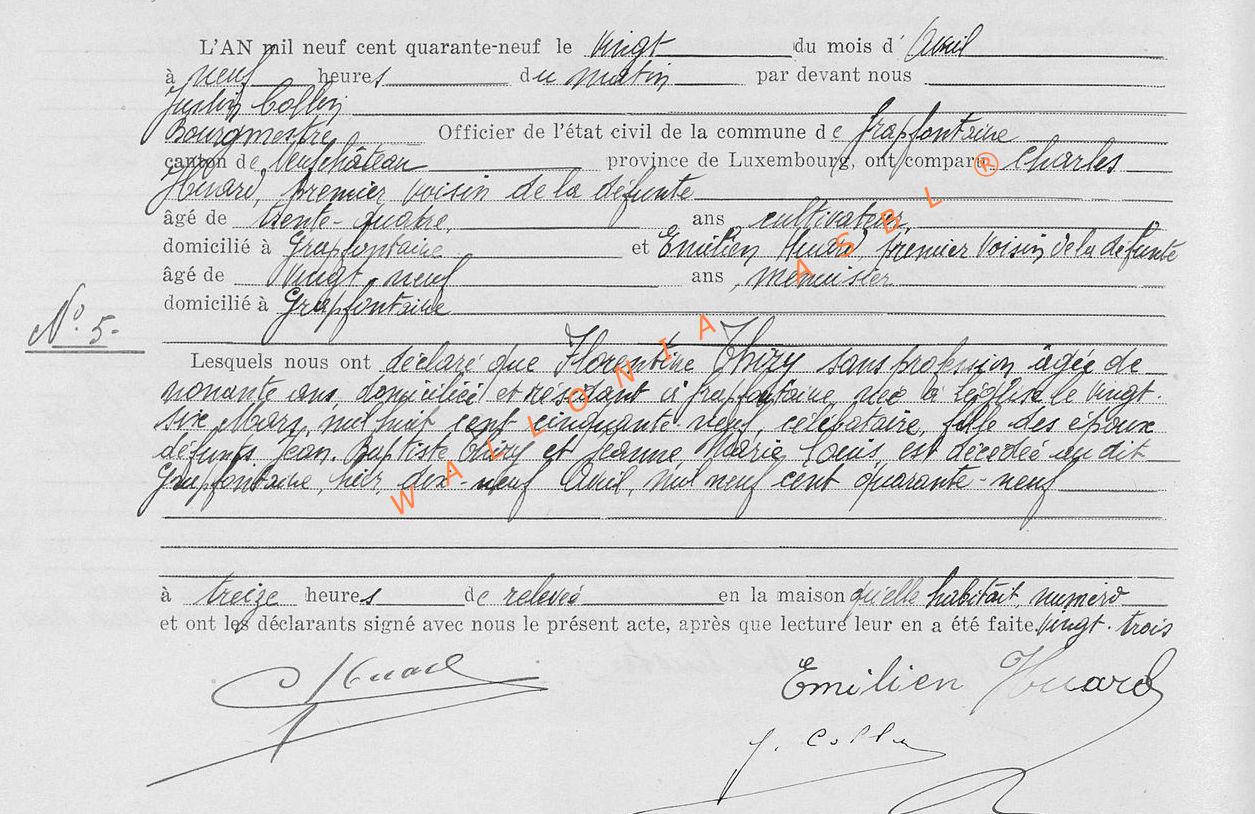 L'AN mil neuf cent quarante-neuf le vingt du mois d' Avril
à neuf heures du matin par devant nous
Justin Collin
Bourgmestre Officier de l'état civil de la commune de Grapfontaine
canton de Neufchâteau province de Luxembourg, ont comparu Charles
Huard, premier voisin de la défunte
âgé de trente-quatre, ans cultivateur,
domicilié à Grapfontaine et Emilien Huard, premier voisin de la défunte
âgé de vingt-neuf ans, menuisier
domicilié à Grapfontaine
N° 5-
Lesquels nous ont déclaré que Florentine Thiry sans profession âgée de
nonante ans, domiciliée et résidant à Grapfontaine, née à Léglise le vingt-
six Mars, mil huit cent cinquante neuf, célibataire, fille des époux
défunts Jean-Baptiste Thiry et Jeanne Marie Louis est décédée au dit
Grapfontaine, hier, dix-neuf Avril, mil neuf cent quarante-neuf
à treize heures de relevée en la maison qu'elle habitait, numéro
et ont les déclarants signé avec nous le présent acte, après que lecture leur en a été faite. vingt-trois
C Huard
Emilien Huard
J. Collin
WALLONIA ASBL ®